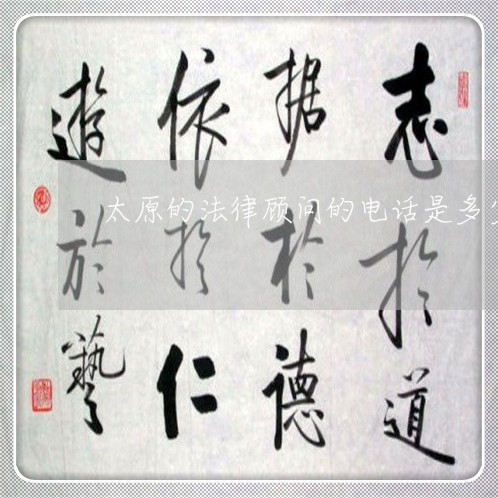 志於道
据於德
依於仁
遊於藝
太原的法律顾问的电话是多